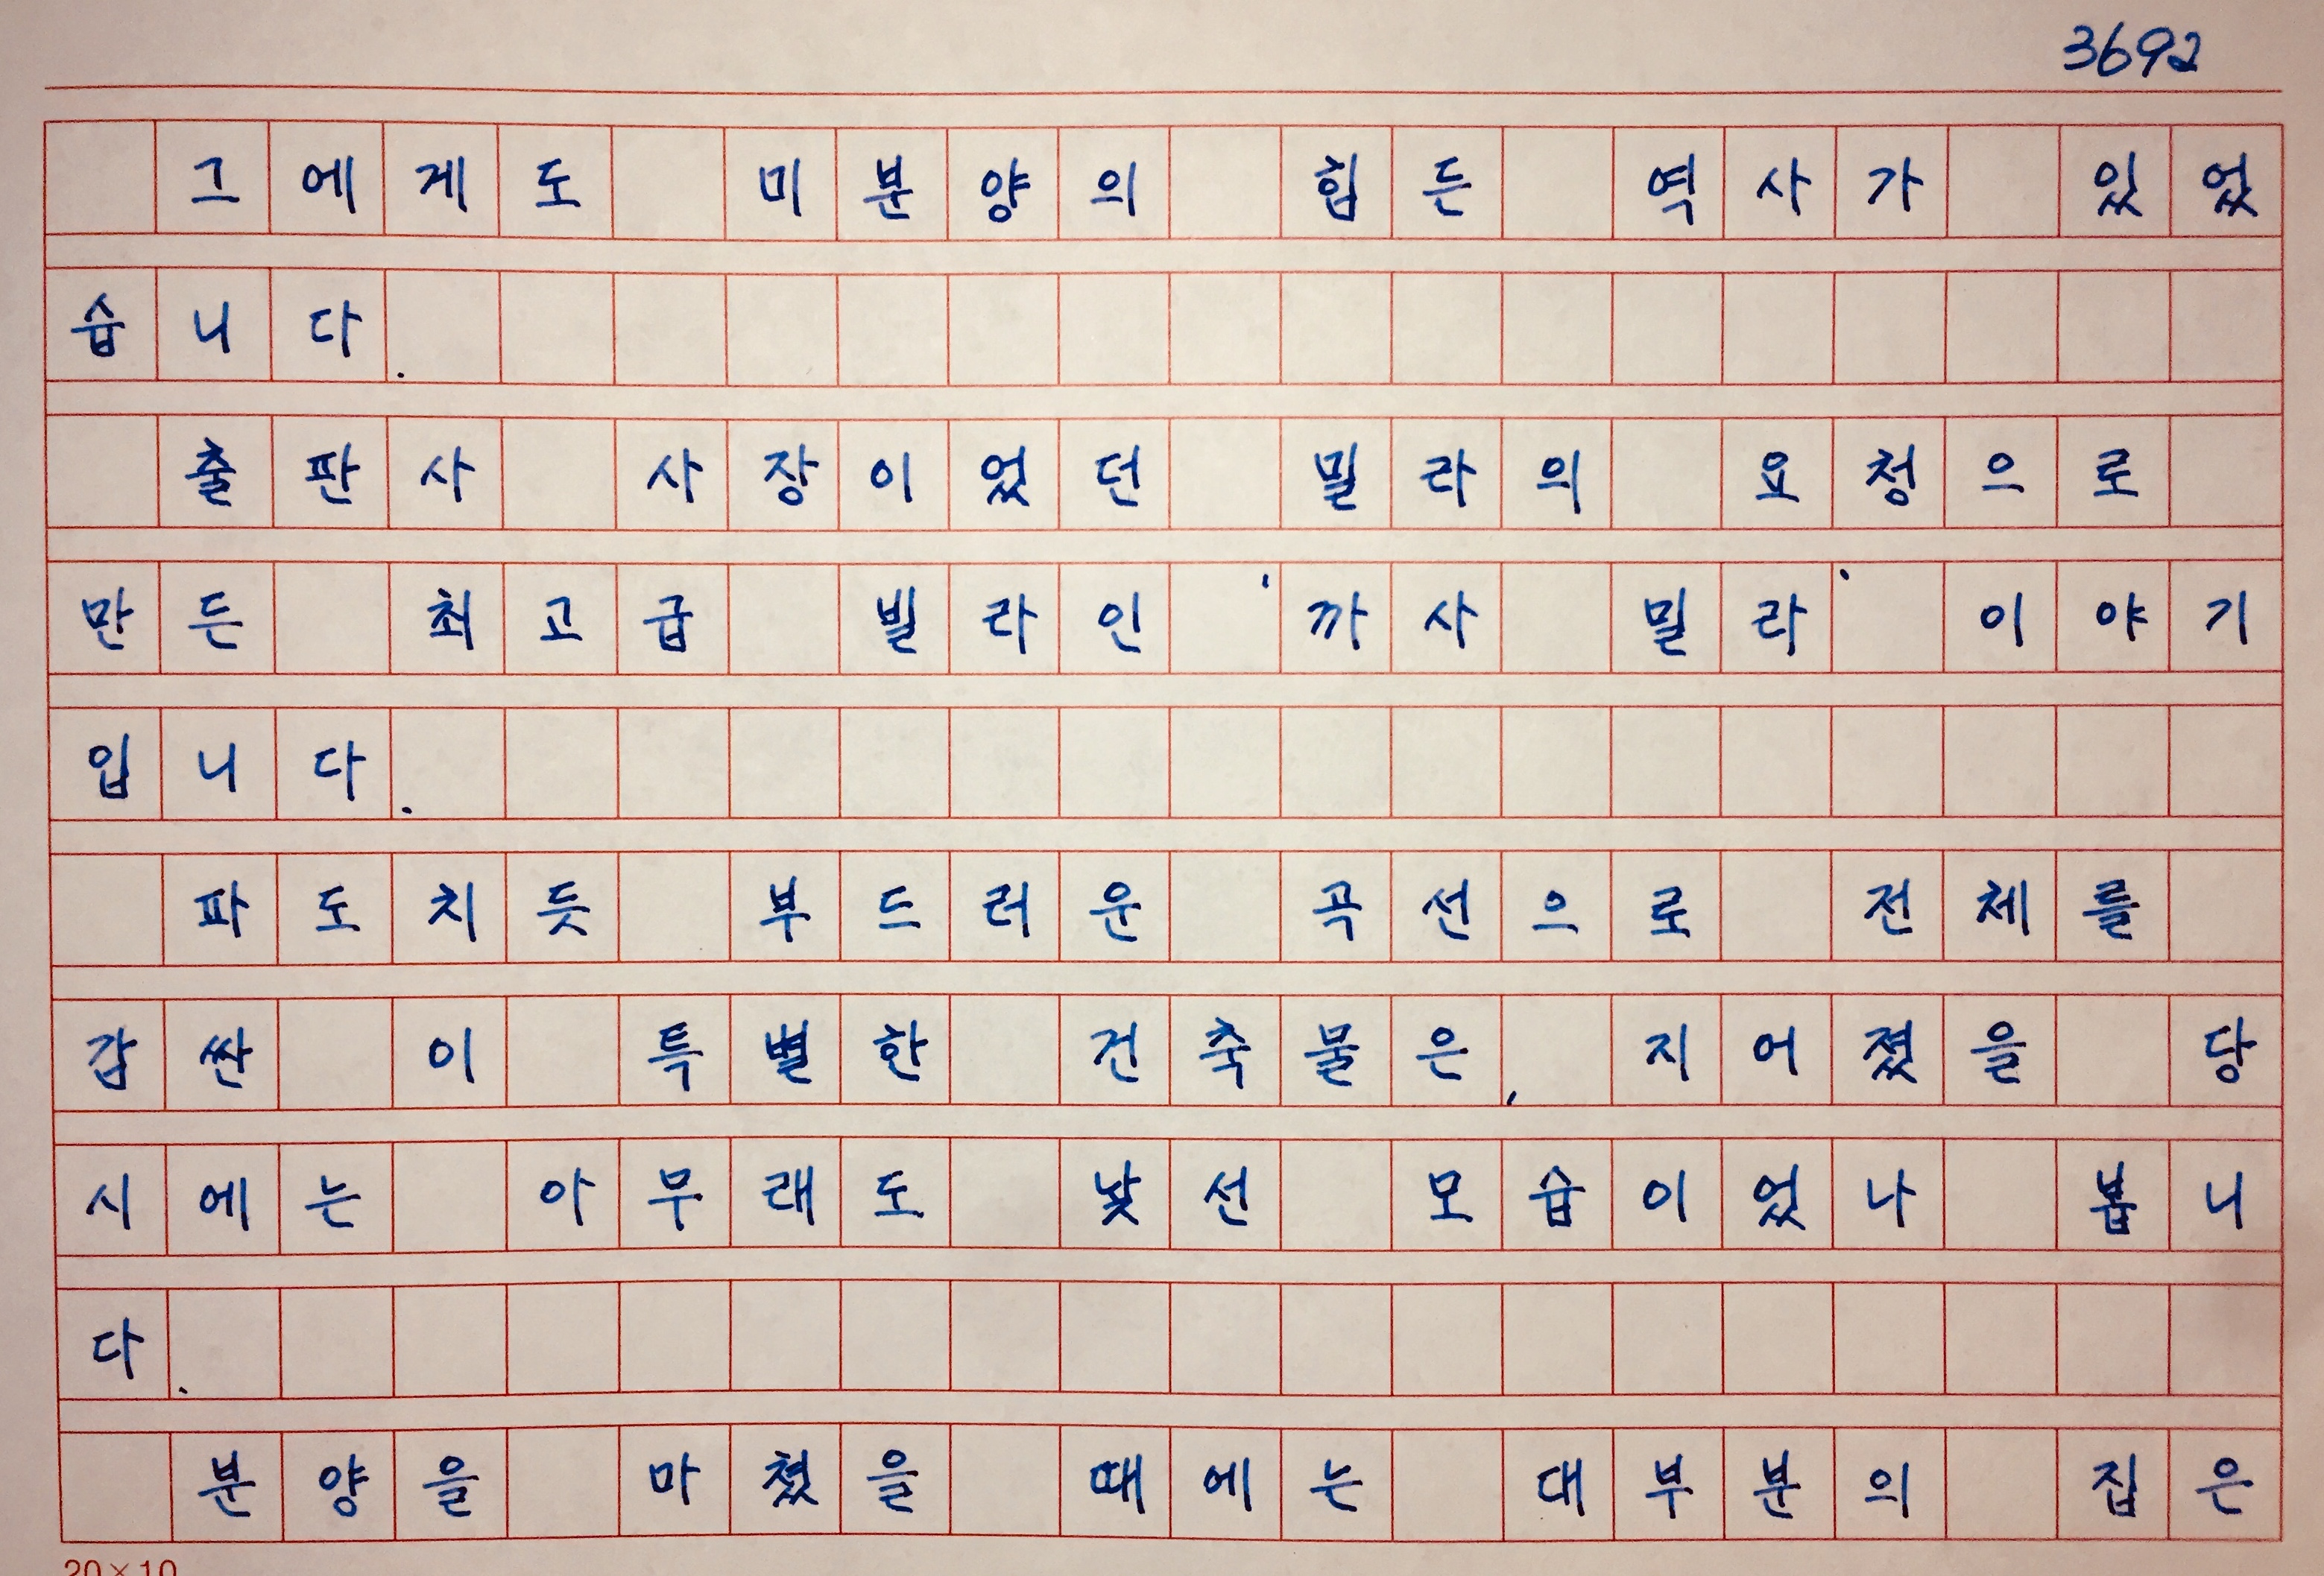 3692
그에게도 미분양의 힘든 역사가 있었
습니다.
출판사 사장이었던 밀라의 요청으로
만든 최고급 빌라인 '까사 밀라' 이야기
입니다.
파도치듯 부드러운 곡선으로 전체를
감싼 이 특별한 건축물은, 지어졌을 당
시에는 아무래도 낯선 모습이었나 봅니
다.
분양을 마쳤을 때에는 대부분의 집은
20×10